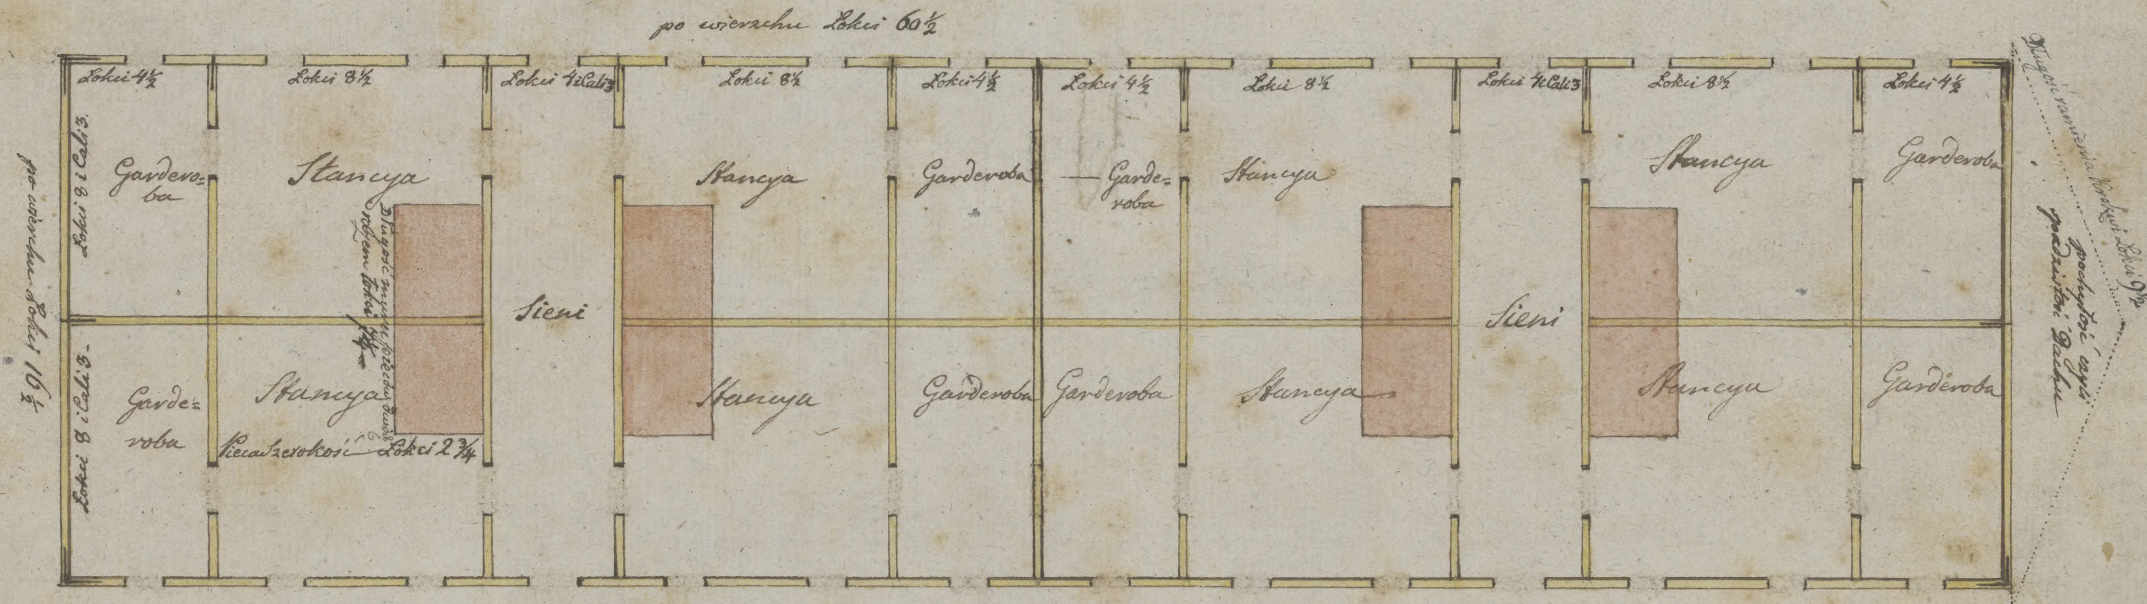 po wierzchu Łokci 60½
Łokci 4½
Łokci 8½
Łokci 4 i Cali 3
Łokci 8½
Łokci 4½
Łokci 4½
Łokci 8½
Łokci 4 i Cali 3
Łokci 8½
Łokci 4½
po wierzchu Łokci 16½
Łokci 8 i Cali 3.
Łokci 8 i Cali 3
Gardero=
ba
Stancya
Stancya
Garderoba
Garde=
roba
Stancya
Stancya
Garderoba
Sieni
Sieni
Garde=
roba
Stancya
Stancya
Garderoba
Garderoba
Stancya
Stancya
Garderoba
Długość
Łokci
Szerokość Łokci 2¾
Długość ramienia Łokci 9½
pochyłość czyli
spadzistość Dachu